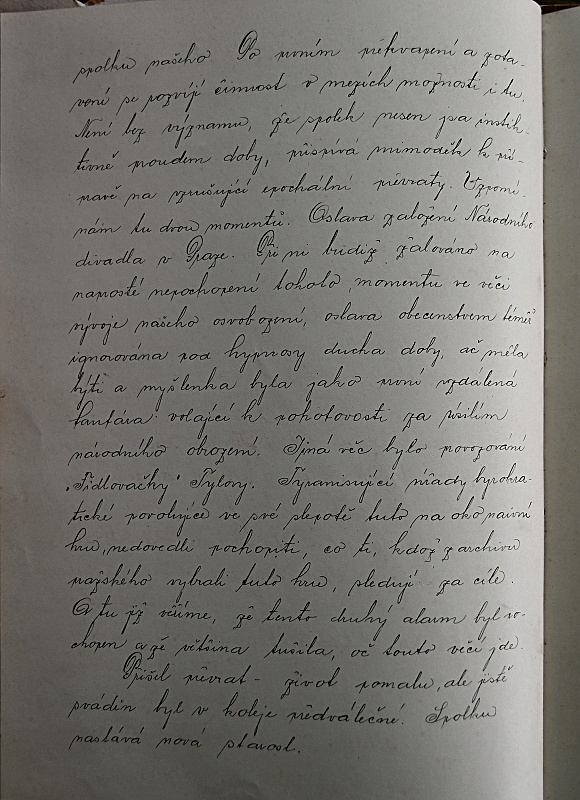 spolku našeho. Po prvním překvapení a zota-
vení se rozvíjí činnost v mezích možnosti i tu.
Není bez významu, že spolek nesen jsa instink-
tivně proudem doby, přispívá mimoděk k pří-
pravě na vzrušující epochální převraty. Vzpomí-
nám tu dvou momentů. Oslava založení Národního
divadla v Praze. Při ní budiž žalováno na
naprosté nepochopení tohoto momentu ve věci
vývoje našeho osvobození, oslava obecenstvem téměř
ignorována pod hypnosy ducha doby, ač měla
býti a myšlenka byla jako první vzdálená
fanfára volající k pohotovosti za úsilím
národního obrození. Jiná věc bylo provozování
"Fidlovačky" Tylovy. Tyranisující úřady byrokra-
tické povolujíce ve své slepotě tuto na oko naivní
hru, nedovedli pochopiti, co ti, kdož z archivu
pražského vybrali tuto hru, sledují za cíle.
A tu již věříme, že tento druhý alarm byl po-
chopen a že většina tušila, oč touto věcí jde.
Přišel převrat - život pomalu, ale jistě
sváděn byl v koleje předválečné. Spolku
nastává nová starost.